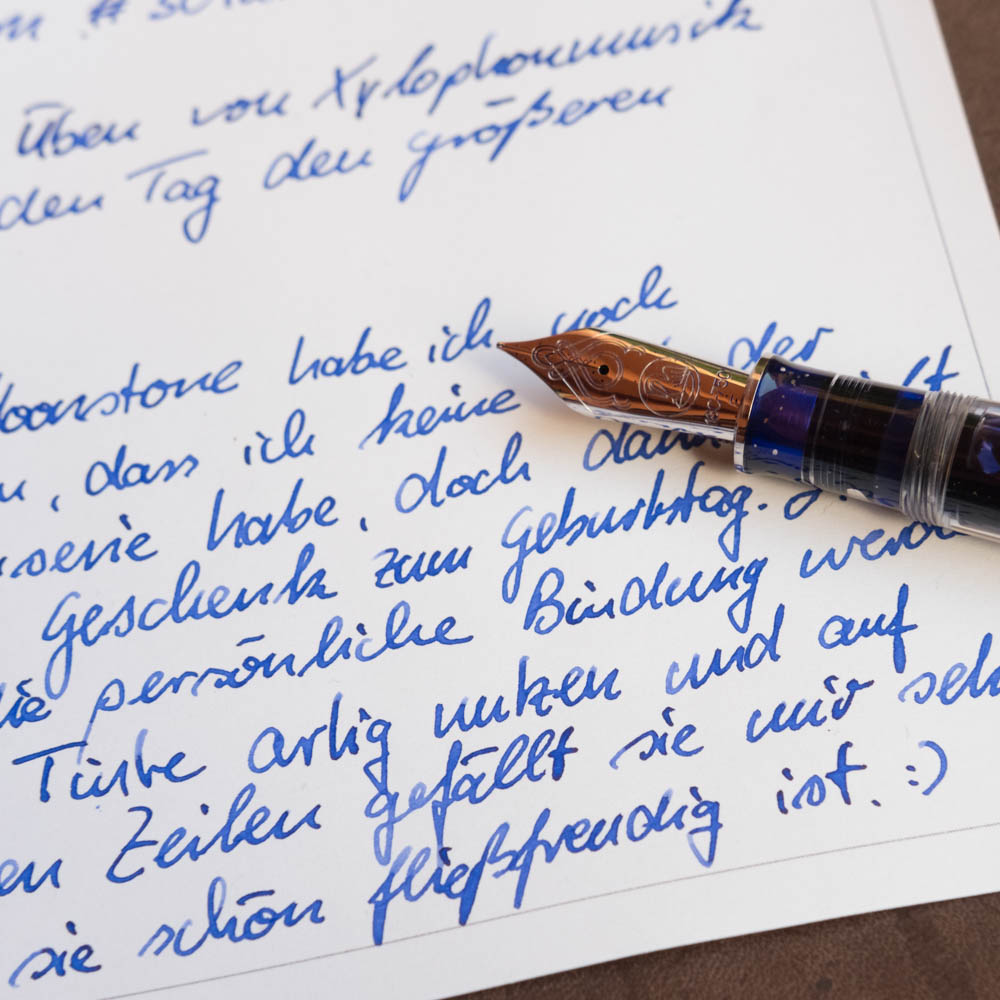 Üben von Xylophonmusik
den Tag den größeren
habe ich noch
, dass ich keine der
habe, doch dann
Geschenk zum Geburtstag.
persönliche Bindung
Tinte artig nutzen und auf
Zeilen gefällt sie mir
sie schön fließfreudig ist. :)